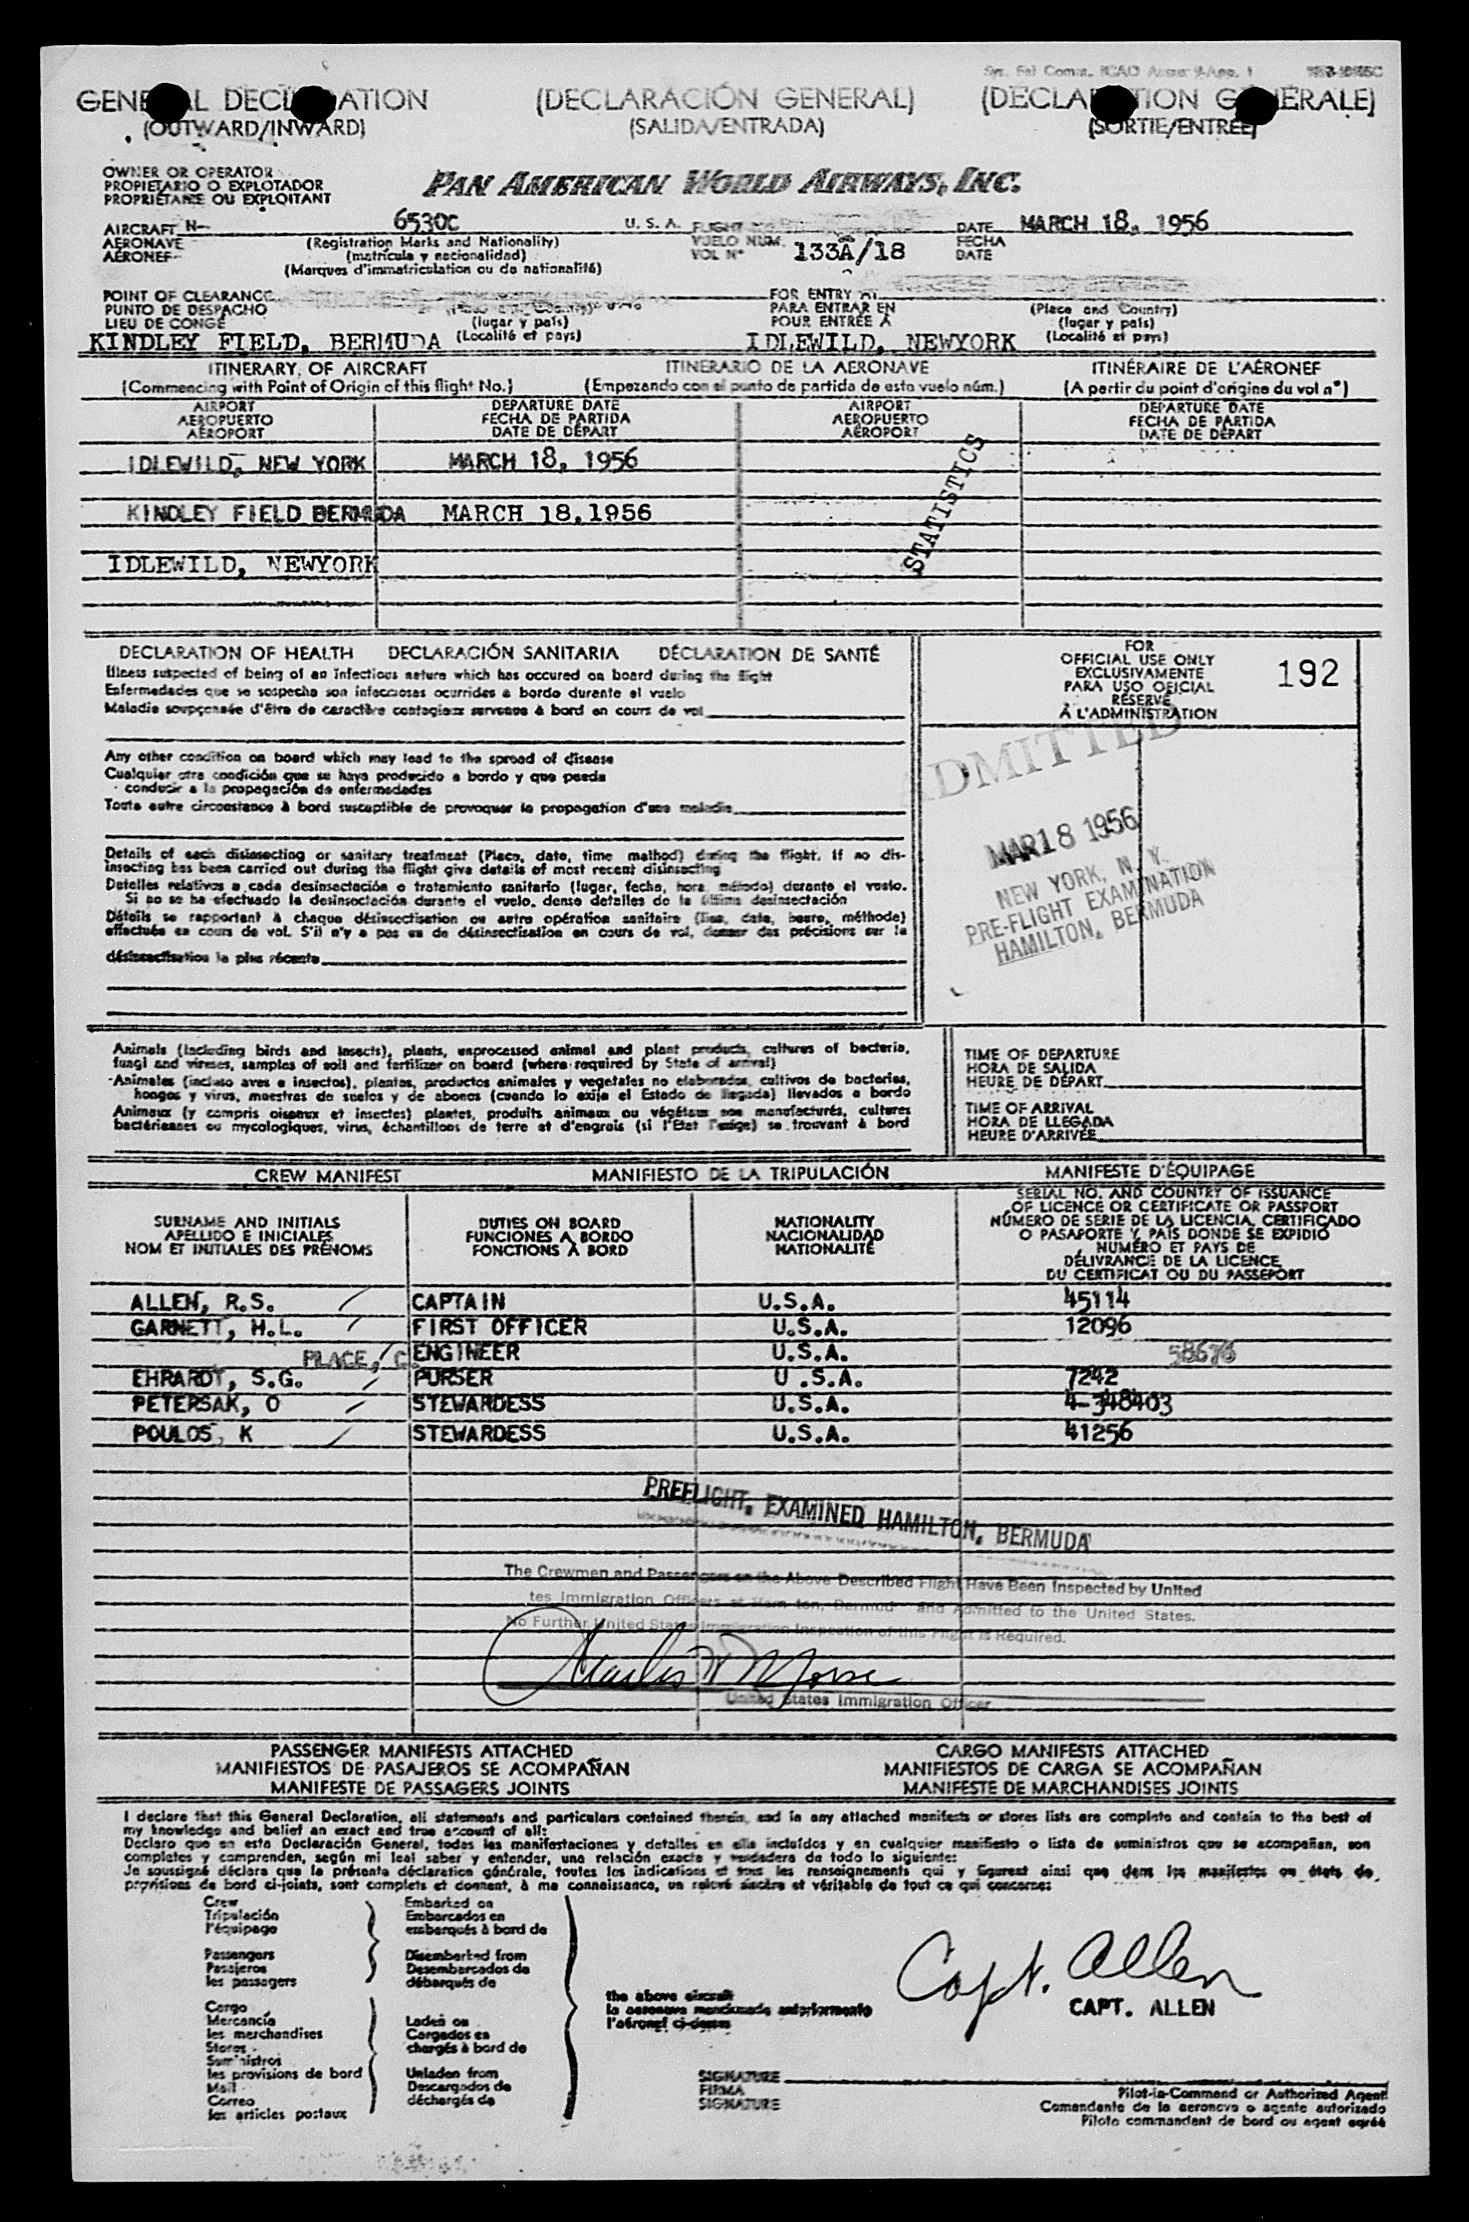 GENERAL DECLARATION (DECLARACIÓN GENERAL) (DECLARATION GÉNÉRALE)
(OUTWARD/INWARD) (SALIDA/ENTRADA) (SORTIE/ENTRÉE)
OWNER OR OPERATOR
PROPIETARIO O EXPLOTADOR
PROPRIÉTAIRE OU EXPLOITANT
PAN AMERICAN WORLD AIRWAYS, INC.
AIRCRAFT N- 6530C U. S. A. FLIGHT DATE MARCH 18, 1956
AERONAVE (Registration Marks and Nationality) VUELO NUM. 133A/18 FECHA
AÉRONEF (matrícula y nacionalidad) VOL Nº DATE
(Marques d'immatriculation ou de nationalité)
POINT OF CLEARANCE FOR ENTRY AT
PUNTO DE DESPACHO (Place and Country) PARA ENTRAR EN (Place and Country)
LIEU DE CONGÉ (lugar y país) POUR ENTRÉE À (lugar y país)
KINDLEY FIELD, BERMUDA (Localité et pays) IDLEWILD, NEWYORK (Localité et pays)
ITINERARY, OF AIRCRAFT ITINERARIO DE LA AERONAVE ITINÉRAIRE DE L'AÉRONEF
(Commencing with Point of Origin of this flight No.) (Empezando con el punto de partida de esto vuelo núm.) (A partir du point d'origine du vol nº)
AIRPORT DEPARTURE DATE AIRPORT DEPARTURE DATE
AEROPUERTO FECHA DE PARTIDA AEROPUERTO FECHA DE PARTIDA
AÉROPORT DATE DE DÉPART AÉROPORT DATE DE DÉPART
IDLEWILD, NEW YORK MARCH 18, 1956
KINDLEY FIELD BERMUDA MARCH 18,1956
IDLEWILD, NEWYORK
STATISTICS
DECLARATION OF HEALTH DECLARACIÓN SANITARIA DÉCLARATION DE SANTÉ
Illness suspected of being of an infectious nature which has occured on board during the flight
Enfermedades que se sospecha son infecciosas ocurridas a bordo durante el vuelo
Maladie soupçonnée d'être de caractère contagieux survenue à bord en cours de vol
Any other condition on board which may lead to the spread of disease
Cualquier otra condición que se haya producido a bordo y que pueda
conducir a la propagación de enfermedades
Toute autre circonstance à bord susceptible de provoquer la propagation d'une maladie
Details of each disinsecting or sanitary treatment (Place, date, time method) during the flight. If no dis-
insecting has been carried out during the flight give details of most recent disinsecting
Detalles relativos a cada desinsectación o tratamiento sanitario (lugar, fecha, hora, método) durante el vuelo.
Si no se ha efectuado la desinsectación durante el vuelo, dense detalles de la última desinsectación
Détails se rapportant à chaque désinsectisation ou autre opération sanitaire (lieu, date, heure, méthode)
effectuée en cours de vol. S'il n'y a pas eu de désinsectisation en cours de vol, donner des précisions sur la
désinsectisation la plus récente
FOR
OFFICIAL USE ONLY
EXCLUSIVAMENTE
PARA USO OFICIAL
RÉSERVÉ
À L'ADMINISTRATION
192
ADMITTED
MAR18 1956
NEW YORK, N. Y.
PRE-FLIGHT EXAMINATION
HAMILTON, BERMUDA
Animals (including birds and insects), plants, unprocessed animal and plant products, cultures of bacteria,
fungi and viruses, samples of soil and fertilizer on board (where required by State of arrival)
Animales (incluso aves e insectos), plantas, productos animales y vegetales no elaborados, cultivos de bacterias,
hongos y virus, muestras de suelos y de abonos (cuando lo exija el Estado de llegada) llevados a bordo
Animaux (y compris oiseaux et insectes) plantes, produits animaux ou végétaux non manufacturés, cultures
bactériennes ou mycologiques, virus, échantillons de terre et d'engrais (si l'État l'exige) se trouvant à bord
TIME OF DEPARTURE
HORA DE SALIDA
HEURE DE DÉPART
TIME OF ARRIVAL
HORA DE LLEGADA
HEURE D'ARRIVÉE
CREW MANIFEST MANIFIESTO DE LA TRIPULACIÓN MANIFESTE D'ÉQUIPAGE
SURNAME AND INITIALS
APELLIDO E INICIALES
NOM ET INITIALES DES PRÉNOMS
DUTIES ON BOARD
FUNCIONES A BORDO
FONCTIONS À BORD
NATIONALITY
NACIONALIDAD
NATIONALITÉ
SERIAL NO. AND COUNTRY OF ISSUANCE
OF LICENCE OR CERTIFICATE OR PASSPORT
NÚMERO DE SERIE DE LA LICENCIA, CERTIFICADO
O PASAPORTE Y PAÍS DONDE SE EXPIDIÓ
NUMÉRO ET PAYS DE
DÉLIVRANCE DE LA LICENCE,
DU CERTIFICAT OU DU PASSEPORT
ALLEN, R.S. CAPTAIN U.S.A. 45114
GARNETT, H.L. FIRST OFFICER U.S.A. 12096
PLACE, C. ENGINEER U.S.A. 58676
EHRARDT, S.G. PURSER U.S.A. 7242
PETERSAK, O STEWARDESS U.S.A. 4-348403
POULOS, K STEWARDESS U.S.A. 41256
PREFLIGHT, EXAMINED HAMILTON, BERMUDA
The Crewmen and Passengers on the Above Described Flight Have Been Inspected by United
tes Immigration Officers at Hamilton, Bermuda and Admitted to the United States.
No Further United States Immigration Inspection of this Flight is Required.
Charles W Morse
United States Immigration Officer
PASSENGER MANIFESTS ATTACHED CARGO MANIFESTS ATTACHED
MANIFIESTOS DE PASAJEROS SE ACOMPAÑAN MANIFIESTOS DE CARGA SE ACOMPAÑAN
MANIFESTE DE PASSAGERS JOINTS MANIFESTE DE MARCHANDISES JOINTS
I declare that this General Declaration, all statements and particulars contained therein, and in any attached manifests or stores lists are complete and contain to the best of
my knowledge and belief an exact and true account of all:
Declaro que en esta Declaración General, todas las manifestaciones y detalles en ella incluídos y en cualquier manifiesto o lista de suministros que se acompañan, son
completos y comprenden, según mi leal saber y entender, una relación exacta y verdadera de todo lo siguiente:
Je soussigné déclare que la présente déclaration générale, toutes les indications et tous les renseignements qui y figurent ainsi que dans les manifestes ou états de
provisions de bord ci-joints, sont complets et donnent, à ma connaissance, un relevé sincère et véritable de tout ce qui concerne:
Crew Embarked on
Tripulación Embarcados en
l'équipage embarqués à bord de
Passengers Disembarked from
Pasajeros Desembarcados de
les passagers débarqués de
the above aircraft
la aeronave mencionada anteriormente
l'aéronef ci-dessus
Cargo
Mercancía Laden on
les merchandises Cargados en
Stores chargés à bord de
Suministros
les provisions de bord Unladen from
Mail Descargados de
Correo déchargés de
les articles postaux
Capt. Allen
CAPT. ALLEN
SIGNATURE
FIRMA
SIGNATURE
Pilot-in-Command or Authorized Agent
Comandante de la aeronave o agente autorizado
Pilote commandant de bord ou agent agréé